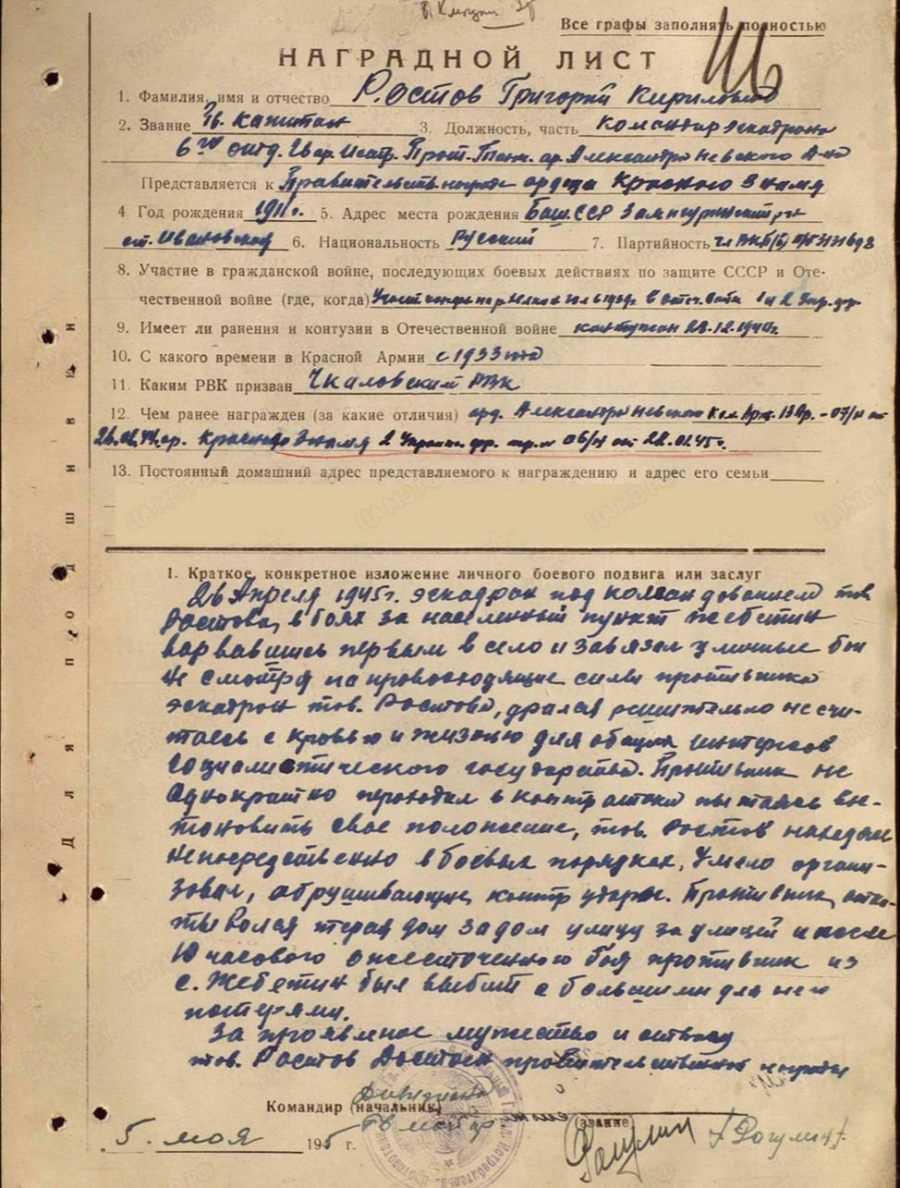 Все графы заполнять полностью
НАГРАДНОЙ ЛИСТ
1. Фамилия, имя и отчество Ростов Григорий Кирилович
2. Звание Гв. капитан 3. Должность, часть командир эскадрона
6го отд. Гвар. Истр. Прот. Танк. ар. Александра Невского
Представляется к Правительств. награде ордена Красного Знамя
4 Год рождения 1911 г. 5. Адрес места рождения Баш.ССР
ст. Ивановской 6. Национальность Русский 7. Партийность чл ВКП(б)
8. Участие в гражданской войне, последующих боевых действиях по защите СССР и Оте-
чественной войне (где, когда)
9. Имеет ли ранения и контузии в Отечественной войне контужен
10. С какого времени в Красной Армии с 1933 года
11. Каким РВК призван Чкаловский РВК
12. Чем ранее награжден (за какие отличия) орд. Александра Невского
ор. Красного Знамя 2 Украин. фр. 06/н от 22.02.45 г.
13. Постоянный домашний адрес представляемого к награждению и адрес его семьи
Для подшивки
1. Краткое, конкретное изложение личного боевого подвига или заслуг
26 Апреля 1945 г. эскадрон под командованием тов
Ростова, в боях за населенный пункт Жебетин
варвавшись первым в село и завязал уличные бои
Не смотря на превосходящие силы противника
эскадрон тов. Ростова, дрался решительно не счи-
таясь с кровью и жизнью для общих интересов
социалистического государства. Противник не
однократно переходил в контратаки пытаясь
становить свое положение, тов. Ростов находясь
непосредственно в боевых порядках, умело органи-
зовал, обрушивающие контр удары. Противник
теряя дом за дом улицу за улицей и после
10 часового ожесточенного боя противник из
с. Жебетин был выбит с большими для него
потерями.
За проявленое мужество и отвагу
тов. Ростов Достоен правительственной награды
Командир (начальник) Дивизиона
Гв майор (звание) /Рогулин/
5. мая 1945 г.